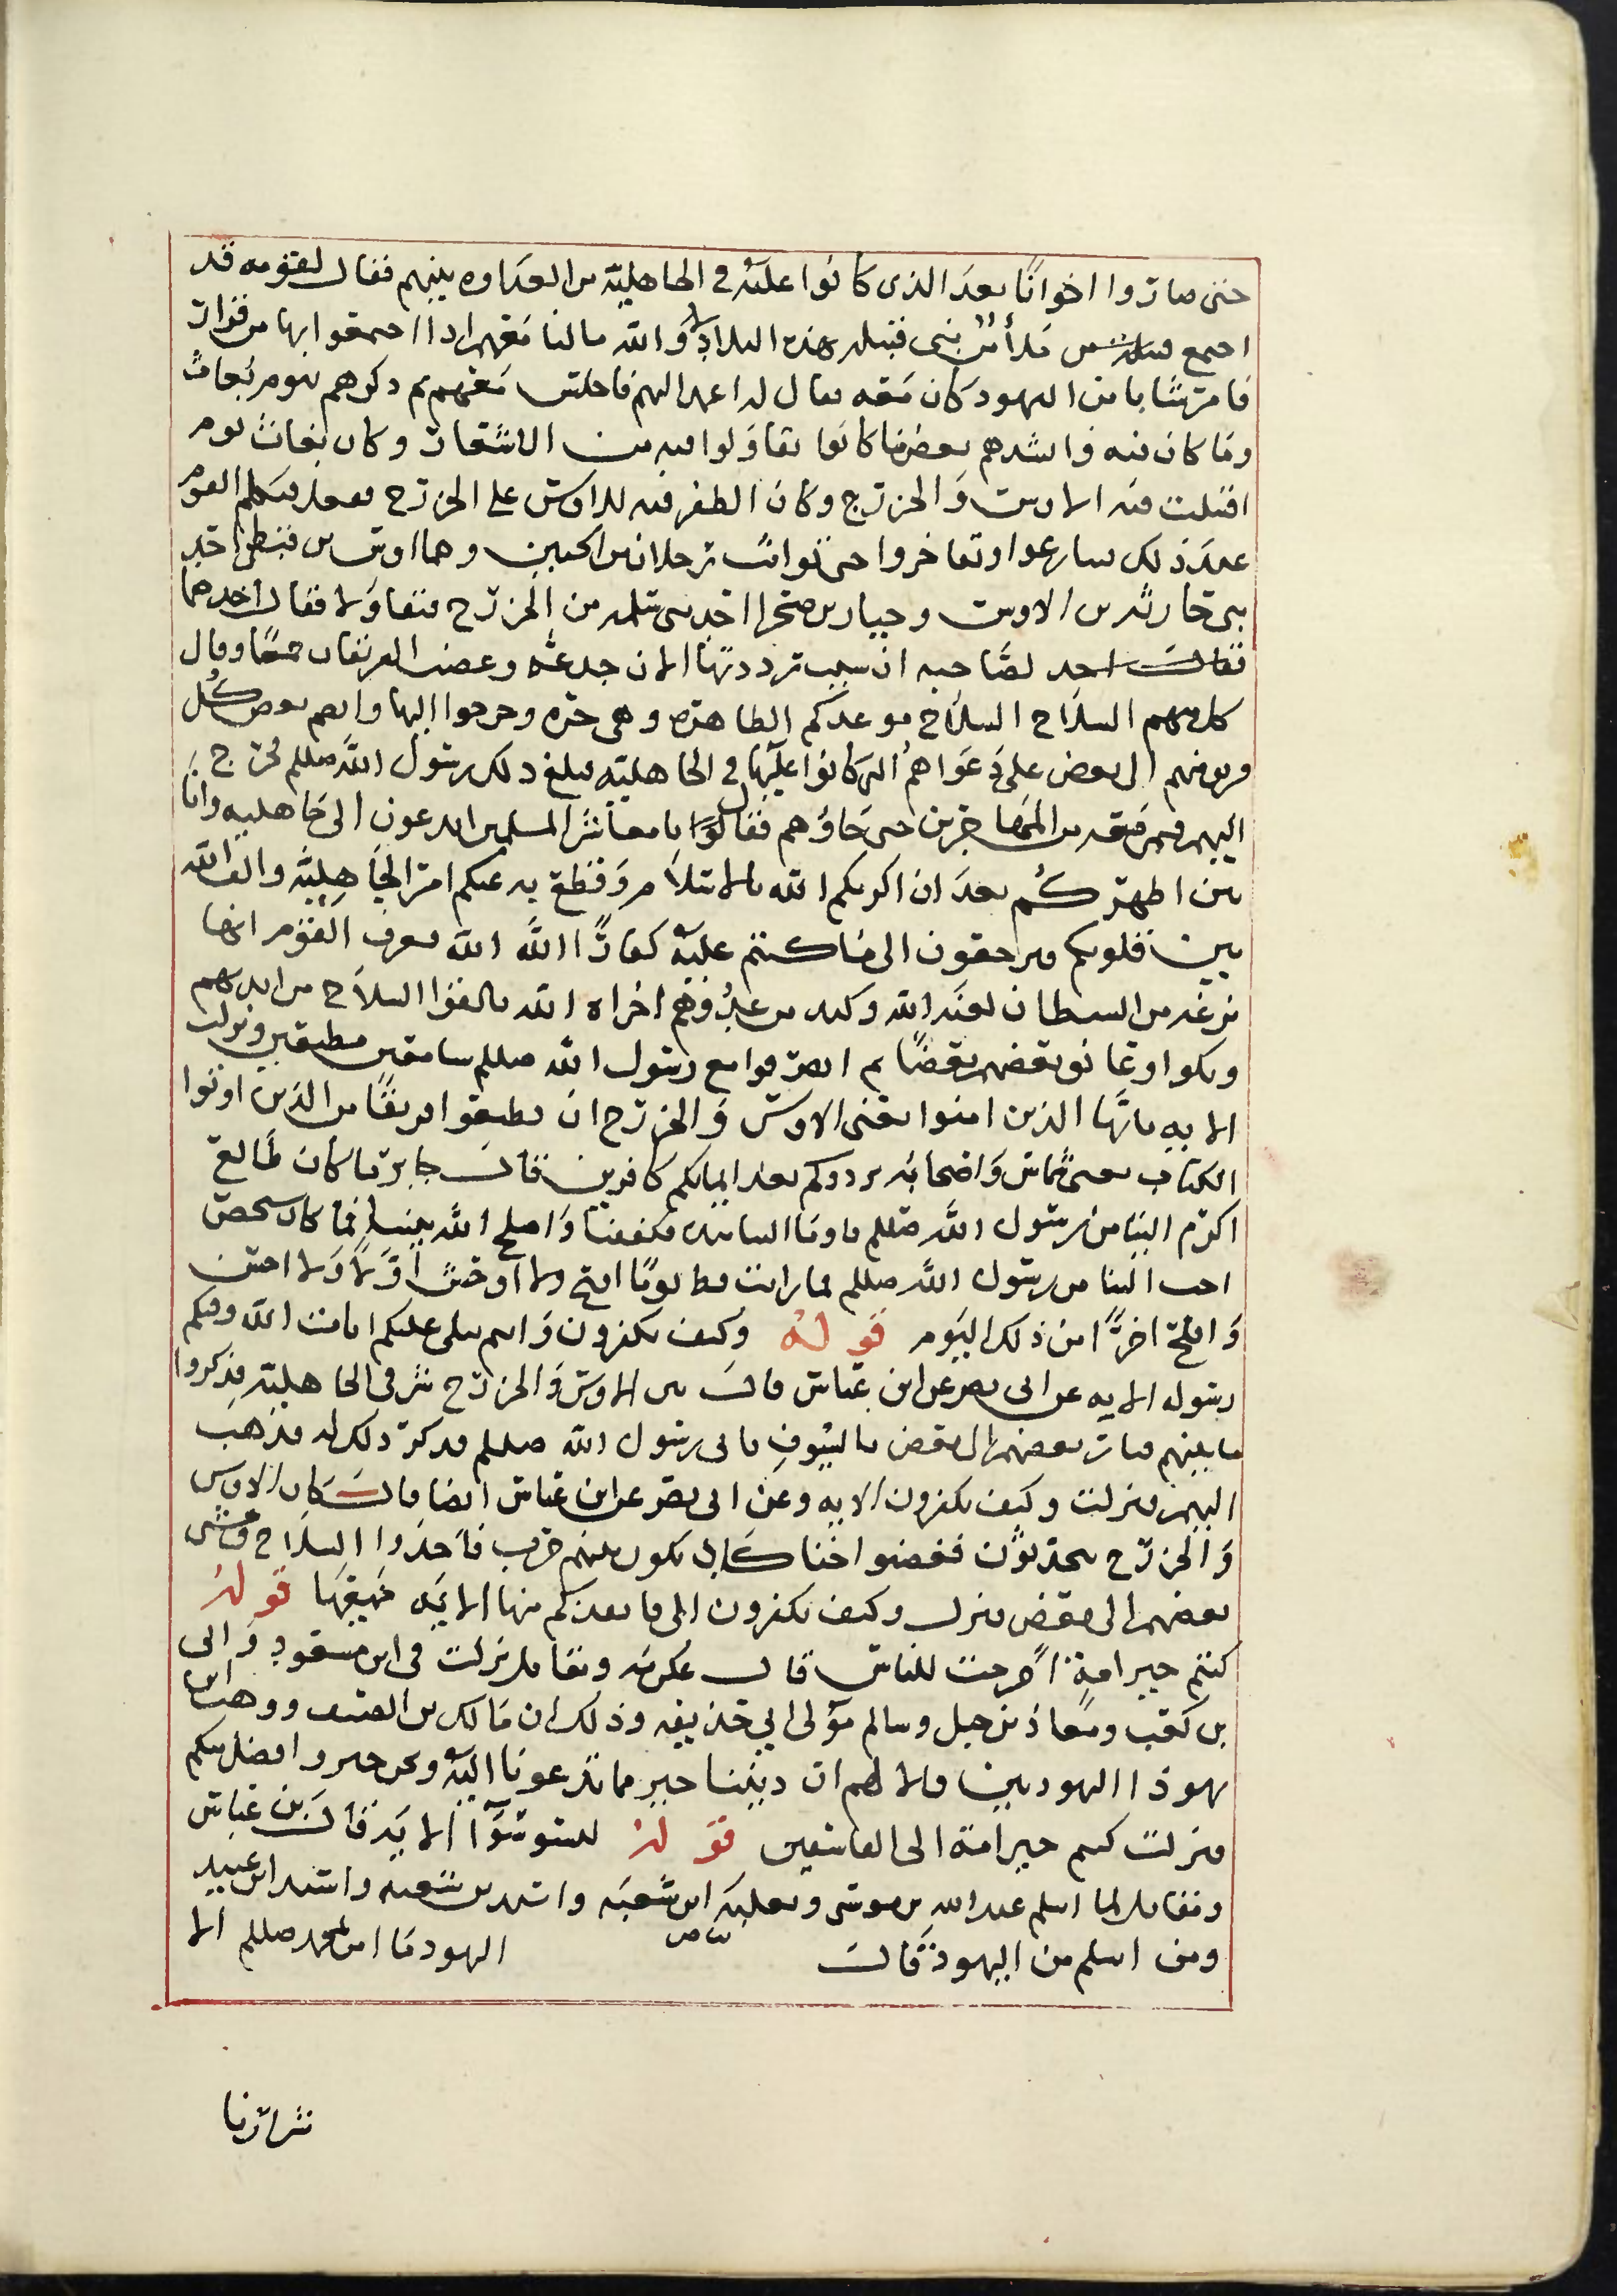 حتى صاروا اخوانًا بعدَ الذى كانوا عليه فى الجاهلية من العداوه بينهم فقال لقومه قد
اجمع مَلأ من بنى قبيله هذه البلاد لا وَالله مالنا معهم اذا اجتمعوا بها من قرار
فامر شابا من اليهود كان معه فقال له اعمد اليهم فاجلس معهم ثم ذكرهم يوم بعاث
وما كان فيه وانشدهم بعض ما كانوا تقاولوا فيه من الاشعار وكان بعاث يوم
اقتتلت فيه الاوس والخزرج وكان الظفر فيه للاوس على الخزرج ففعل فتكلم القوم
عند ذلك فتنازعوا وتفاخروا حتى تواثب رجلان من الحيين وهما اوس بن قيظى احد
بنى حارثة من الاوس وجبار بن صخر احد بنى سلمه من الخزرج فتقاولا فقال احدهما
فقال احد لصاحبه ان شيت رددتها الان جدعة وغضب الفريقان جميعًا وقال
كل منهم السلاح السلاح موعدكم الظاهره وهى حره وخرجوا اليها وانضم بعض كل
فريق منهم الى بعض على دعواهم التى كانوا عليها فى الجاهلية فبلغ ذلك رسول الله صللم فخرج
اليهم فيمن معه من المهاجرين حتى جاؤهم فقال يا معاشر المسلمين اتدعون الى جاهليه وانا
بين اظهركم بعد ان اكرمكم الله بالاسلام وقطع به عنكم امر الجاهلية والف الله
بين قلوبكم فترجعون الى ما كنتم عليه كفارًا الله الله فعرف القوم انها
نزغه من الشيطان لعنه الله وكيد من عدوهم اخزاه الله فالقوا السلاح من ايديهم
وبكوا وعانق بعضهم بعضًا ثم انصرفوا مع رسول الله صللم سامعين مطيعين ونزلت
الايه ياايها الذين امنوا يعنى الاوس والخزرج ان تطيعوا فريقًا من الذين اوتوا
الكتاب يعنى شماس واصحابه يردوكم بعد ايمانكم كافرين قال جابر ما كان طالع
اكره الينا من رسول الله صللم فاومأ الينا بيده فكففنا واصلح الله بيننا فما كان شخص
احب الينا من رسول الله صللم فما رايت قط يومًا اقبح ولا اوحش اوّلاً ولا احسن
واصلح اخرًا من ذلك اليوم قوله وكيف تكفرون وانتم تتلى عليكم ايات الله وفيكم
رسوله الايه عن ابى نصر عن ابن عباس قال بين الاوس والخزرج شر فى الجاهلية فذكروا
ما بينهم فثار بعضهم الى بعض بالسيوف فاتى رسول الله صللم فذكر ذلك له فذهب
اليهم فنزلت وكيف تكفرون الايه وعن ابى نصر عن ابن عباس ايضا قال كان الاوس
والخزرج يتحدثون فغضبوا حتى كاد ان يكون بينهم حرب فاخذوا السلاح ومشى
بعضهم الى بعض فنزل وكيف تكفرون الى فانقذكم منها الايه جميعها قوله
كنتم خير امة اخرجت للناس قال عكرمه ومقاتل نزلت فى ابن مسعود وابى
بن كعب ومعاذ بن جبل وسالم مولى ابى حذيفه وذلك ان مالك بن الصيف ووهب ابن
يهوذا اليهوديين قالا لهم ان ديننا خير مما تدعونا اليه ونحن خير وافضل منكم
فنزلت كنتم خير امة الى الفاسقين قوله ليسوا سوآءً الاية قال بن عباس
ومقاتل لما اسلم عبد الله بن سلام وثعلبه ابن شعبه واسيد بن شعبه واسد ابن عبيد
ومن اسلم من اليهود قالت اليهود ما امن بمحمد صللم الا
شرارنا